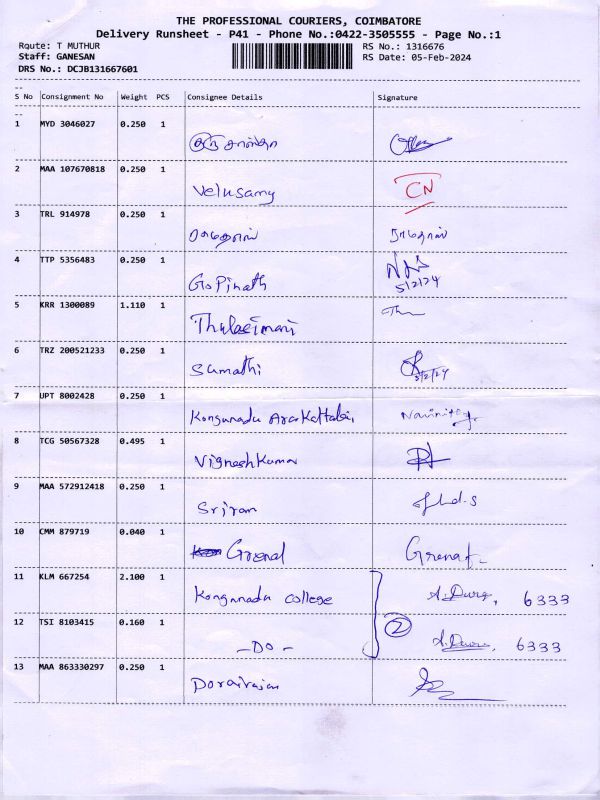 THE PROFESSIONAL COURIERS, COIMBATORE
Delivery Runsheet - P41 - Phone No.:0422-3505555 - Page No.:1
Route: T MUTHUR
RS No.: 1316676
Staff: GANESAN
RS Date: 05-Feb-2024
DRS No.: DCJB131667601
S No Consignment No Weight PCS Consignee Details Signature
1 MYD 3046027 0.250 1
2 MAA 107670818 0.250 1
Velusamy CN
3 TRL 914978 0.250 1
4 TTP 5356483 0.250 1
Gopinath 5/2/24
5 KRR 1300089 1.110 1
Thulasimani
6 TRZ 200521233 0.250 1
Sumathi 5/2/24
7 UPT 8002428 0.250 1
Kongunadu
8 TCG 50567328 0.495 1
Vignesh Kumar
9 MAA 572912418 0.250 1
Sriram
10 CMM 879719 0.040 1
11 KLM 667254 2.100 1
Kongunadu College 6333
12 TSI 8103415 0.160 1
- DO - 2 6333
13 MAA 863330297 0.250 1
Dorairajan